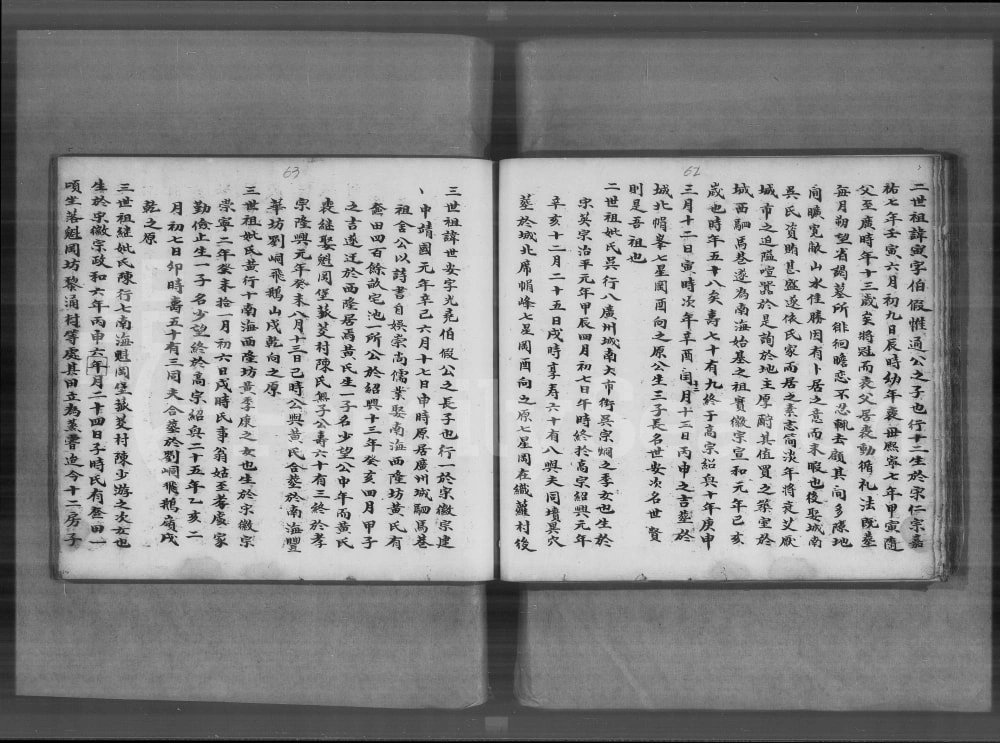 62
二世祖諱寅字伯假惟通公之子也行十二生於宋仁宗嘉
祐七年壬寅六月初九日辰時幼年喪母熙寧七年甲寅隨
父至廣時年十三歲矣將冠而喪父居喪動循礼法既塟
每月朔望省謁墓所徘徊瞻恋不忍輒去顧其间多隙地
间曠寬敞山水佳勝因有卜居之意而未暇也後娶城南
吳氏資賄甚盛遂依氏家而居之素志簡淡年將衰艾厭
城市之迫隘喧嚣於是詢於地主厚酧其值買之築室於
城西駟馬巷遂為南海始基之祖實徽宗宣和元年己亥
歲也時年五十八矣壽七十有九終于高宗紹興十年庚申
三月十二日寅時次年辛酉闰月十三日丙申之吉塟於
城北帽峯七星岡酉向之原公生三子長名世安次名世賢
則是吾祖也
二世祖妣氏吳行八廣州城南大市街吳宗嫻之季女也生於
宋英宗治平元年甲辰四月初七日午時終於高宗紹興元年
辛亥十二月二十五日戌時享寿六十有八與夫同墳異穴
塟於城北席帽峰七星岡酉向之原七星岡在織蘿村後
63
三世祖諱世安字光堯伯假公之長子也行一於宋徽宗建
申靖國元年辛巳六月十七日申時原居廣州城駟馬巷
祖舍公以詩書自娛崇尚儒業娶南海西隆坊黄氏有
奩田四百餘畝宅池一所公於紹興十三年癸亥四月甲子
之吉遂迁於西隆居焉黄氏生一子名少望公中年而黄氏
喪継娶魁岡堡菽茭村陳氏無子公壽六十有三終於孝
宗隆興元年癸未八月十三日己時公與黄氏合塟於南海豐
華坊劉峒飛鵝山戌乾向之原
三世祖妣氏黄行十南海西隆坊黄季康之女也生於宋徽宗
崇寧二年癸未拾一月初六日戌時氏事翁姑至孝處家
勤儉止生一子名少望終於高宗紹興二十五年乙亥二
月初七日卯時壽五十有三同夫合塟於劉峒飛鵝嶺戌
乾之原
三世祖継妣氏陳行七南海魁岡堡菽茭村陳少游之次女也
生於宋徽宗政和六年丙申六年月二十四日子時氏有奩田一
頃坐落魁岡坊黎涌村等處其田立為蒸嘗迄今十二房子